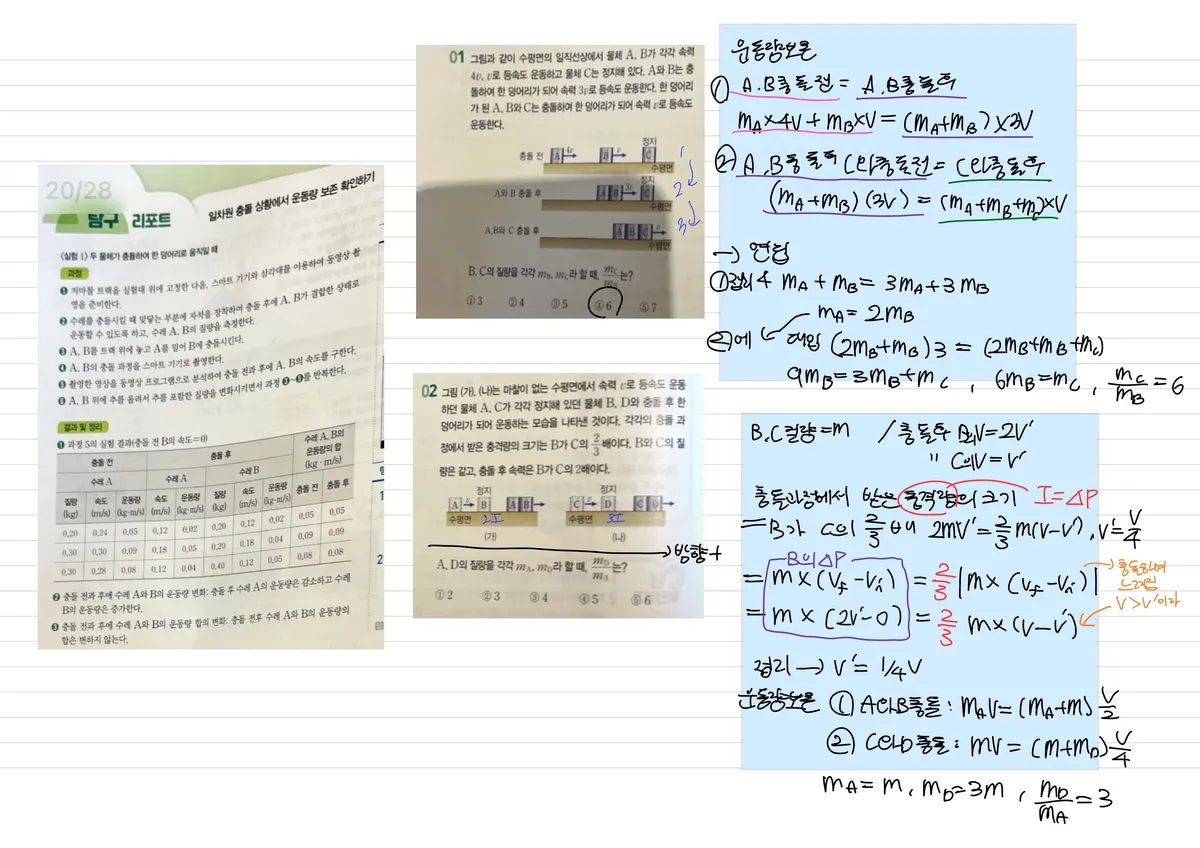 20/28
탐구 리포트
일차원 충돌 상황에서 운동량 보존 확인하기
〈실험 1〉 두 물체가 충돌하여 한 덩어리로 움직일 때
과정
❶ 저마찰 트랙을 실험대 위에 고정한 다음, 스마트 기기와 삼각대를 이용하여 동영상 촬
영을 준비한다.
❷ 수레를 충돌시킬 때 맞닿는 부분에 자석을 장착하여 충돌 후에 A, B가 결합한 상태로
운동할 수 있도록 하고, 수레 A, B의 질량을 측정한다.
❸ A, B를 트랙 위에 놓고 A를 밀어 B에 충돌시킨다.
❹ A, B의 충돌 과정을 스마트 기기로 촬영한다.
❺ 촬영한 영상을 동영상 프로그램으로 분석하여 충돌 전과 후에 A, B의 속도를 구한다.
❻ A, B 위에 추를 올려서 추를 포함한 질량을 변화시키면서 과정 ❸~❺를 반복한다.
결과 및 정리
❶ 과정 5의 실험 결과(충돌 전 B의 속도=0)
충돌 전 충돌 후 수레 A, B의 운동량의 합 (kg·m/s)
수레 A 수레 A 수레 B 충돌 전 충돌 후
질량 (kg) 속도 (m/s) 운동량 (kg·m/s) 속도 (m/s) 운동량 (kg·m/s) 질량 (kg) 속도 (m/s) 운동량 (kg·m/s)
0.20 0.24 0.05 0.12 0.02 0.20 0.12 0.02 0.05 0.05
0.30 0.30 0.09 0.18 0.05 0.20 0.18 0.04 0.09 0.09
0.30 0.28 0.08 0.12 0.04 0.40 0.12 0.05 0.08 0.08
❷ 충돌 전과 후에 수레 A와 B의 운동량 변화: 충돌 후 수레 A의 운동량은 감소하고 수레
B의 운동량은 증가한다.
❸ 충돌 전과 후에 수레 A와 B의 운동량 합의 변화: 충돌 전후 수레 A와 B의 운동량의
합은 변하지 않는다.
01 그림과 같이 수평면의 일직선상에서 물체 A, B가 각각 속력
4v, v로 등속도 운동하고 물체 C는 정지해 있다. A와 B는 충
돌하여 한 덩어리가 되어 속력 3v로 등속도 운동한다. 한 덩어리
가 된 A, B와 C는 충돌하여 한 덩어리가 되어 속력 v로 등속도
운동한다.
정지
충돌 전 A 4v B v C 1
수평면
정지
A와 B 충돌 후 A B 3v C 2
수평면
A,B와 C 충돌 후 A B C v 3
수평면
B, C의 질량을 각각 mB, mC라 할 때, mC/mB는?
① 3 ② 4 ③ 5 ④ 6 ⑤ 7
02 그림 (가), (나)는 마찰이 없는 수평면에서 속력 v로 등속도 운동
하던 물체 A, C가 각각 정지해 있던 물체 B, D와 충돌 후 한
덩어리가 되어 운동하는 모습을 나타낸 것이다. 각각의 충돌 과
정에서 받은 충격량의 크기는 B가 C의 2/3배이다. B와 C의 질
량은 같고, 충돌 후 속력은 B가 C의 2배이다.
정지 정지
A v B A B C v D C D
수평면 2I 수평면 3I
(가) (나)
→ 방향+
A, D의 질량을 각각 mA, mD라 할 때, mD/mA는?
① 2 ② 3 ③ 4 ④ 5 ⑤ 6
운동량보존
① A.B충돌전 = A.B충돌후
mA×4V + mB×V = (mA+mB)×3V
② A.B충돌후 C와충돌전 = C와충돌후
(mA+mB)(3V) = (mA+mB+mC)×V
→ 연립
①정리 4mA + mB = 3mA+3mB
mA = 2mB
②에 대입 (2mB+mB)3 = (2mB+mB+mC)
9mB = 3mB+mC , 6mB=mC , mC/mB = 6
B.C질량=m / 충돌후 B의V=2V'
" C의V = V'
충돌과정에서 받은 충격량의 크기 I=ΔP
= B가 C의 2/3배 2mV'=2/3m(V-V'), V'=V/4
B의ΔP
= m×(Vf-Vi) = 2/3|m×(Vf-Vi)|
→ 충돌하며
느려짐
V>V'이라
= m×(2V'-0) = 2/3 m×(V-V')
정리 → V' = 1/4V
운동량보존 ① A와B충돌: mAV=(mA+m)V/2
② C와D충돌: mV = (m+mD)V/4
mA=m, mD=3m , mD/mA=3